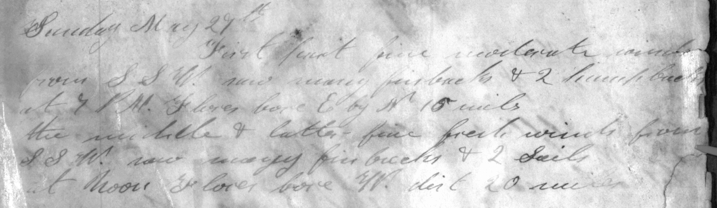 Sunday May 29th
First part fine moderate winds
from S S W. saw many finbacks & 2 humpbacks
at 7 P.M. Flores bore E by N 15 mils
the middle & latter fine fresh winds from
S S W. saw many finbacks & 2 Sails
at Noon Flores bore W. dist 20 miles